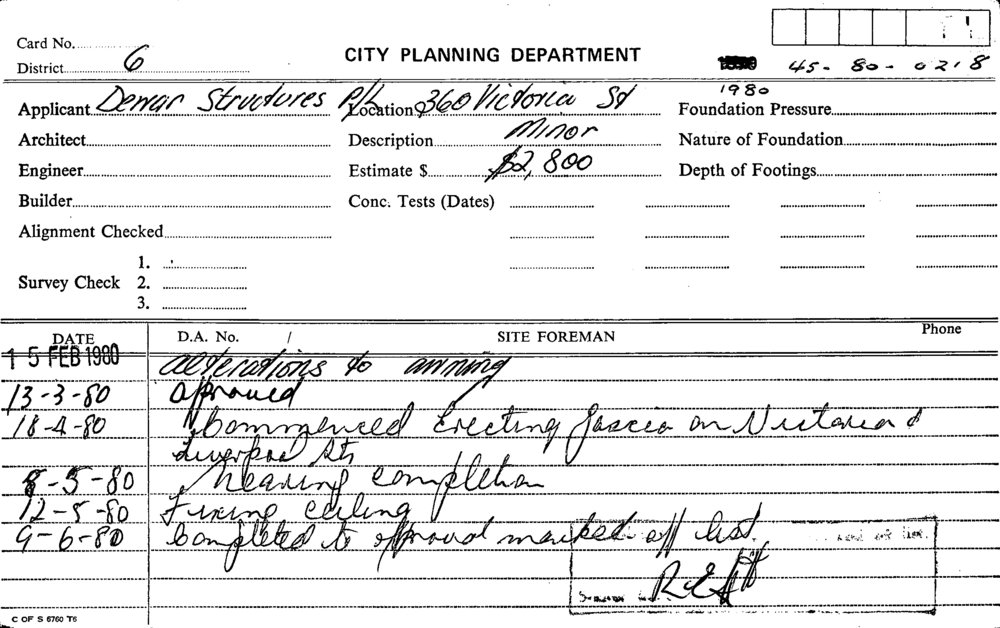 Card No.
District 6
CITY PLANNING DEPARTMENT
45-80-0218
1980
Applicant Demar Structures P/L Location 360 Victoria St Foundation Pressure
Architect Description Minor Nature of Foundation
Engineer Estimate $ $2,800 Depth of Footings
Builder Conc. Tests (Dates)
Alignment Checked
1.
Survey Check 2.
3.
DATE D.A. No. / SITE FOREMAN Phone
15 FEB 1980 alterations to awning
13-3-80 approved
18-4-80 Commenced Erecting fascia on Victoria &
Liverpool Sts
8-5-80 nearing completion
12-5-80 Fixing ceiling
9-6-80 Completed to approval marked off list.
C OF S 6760 T6